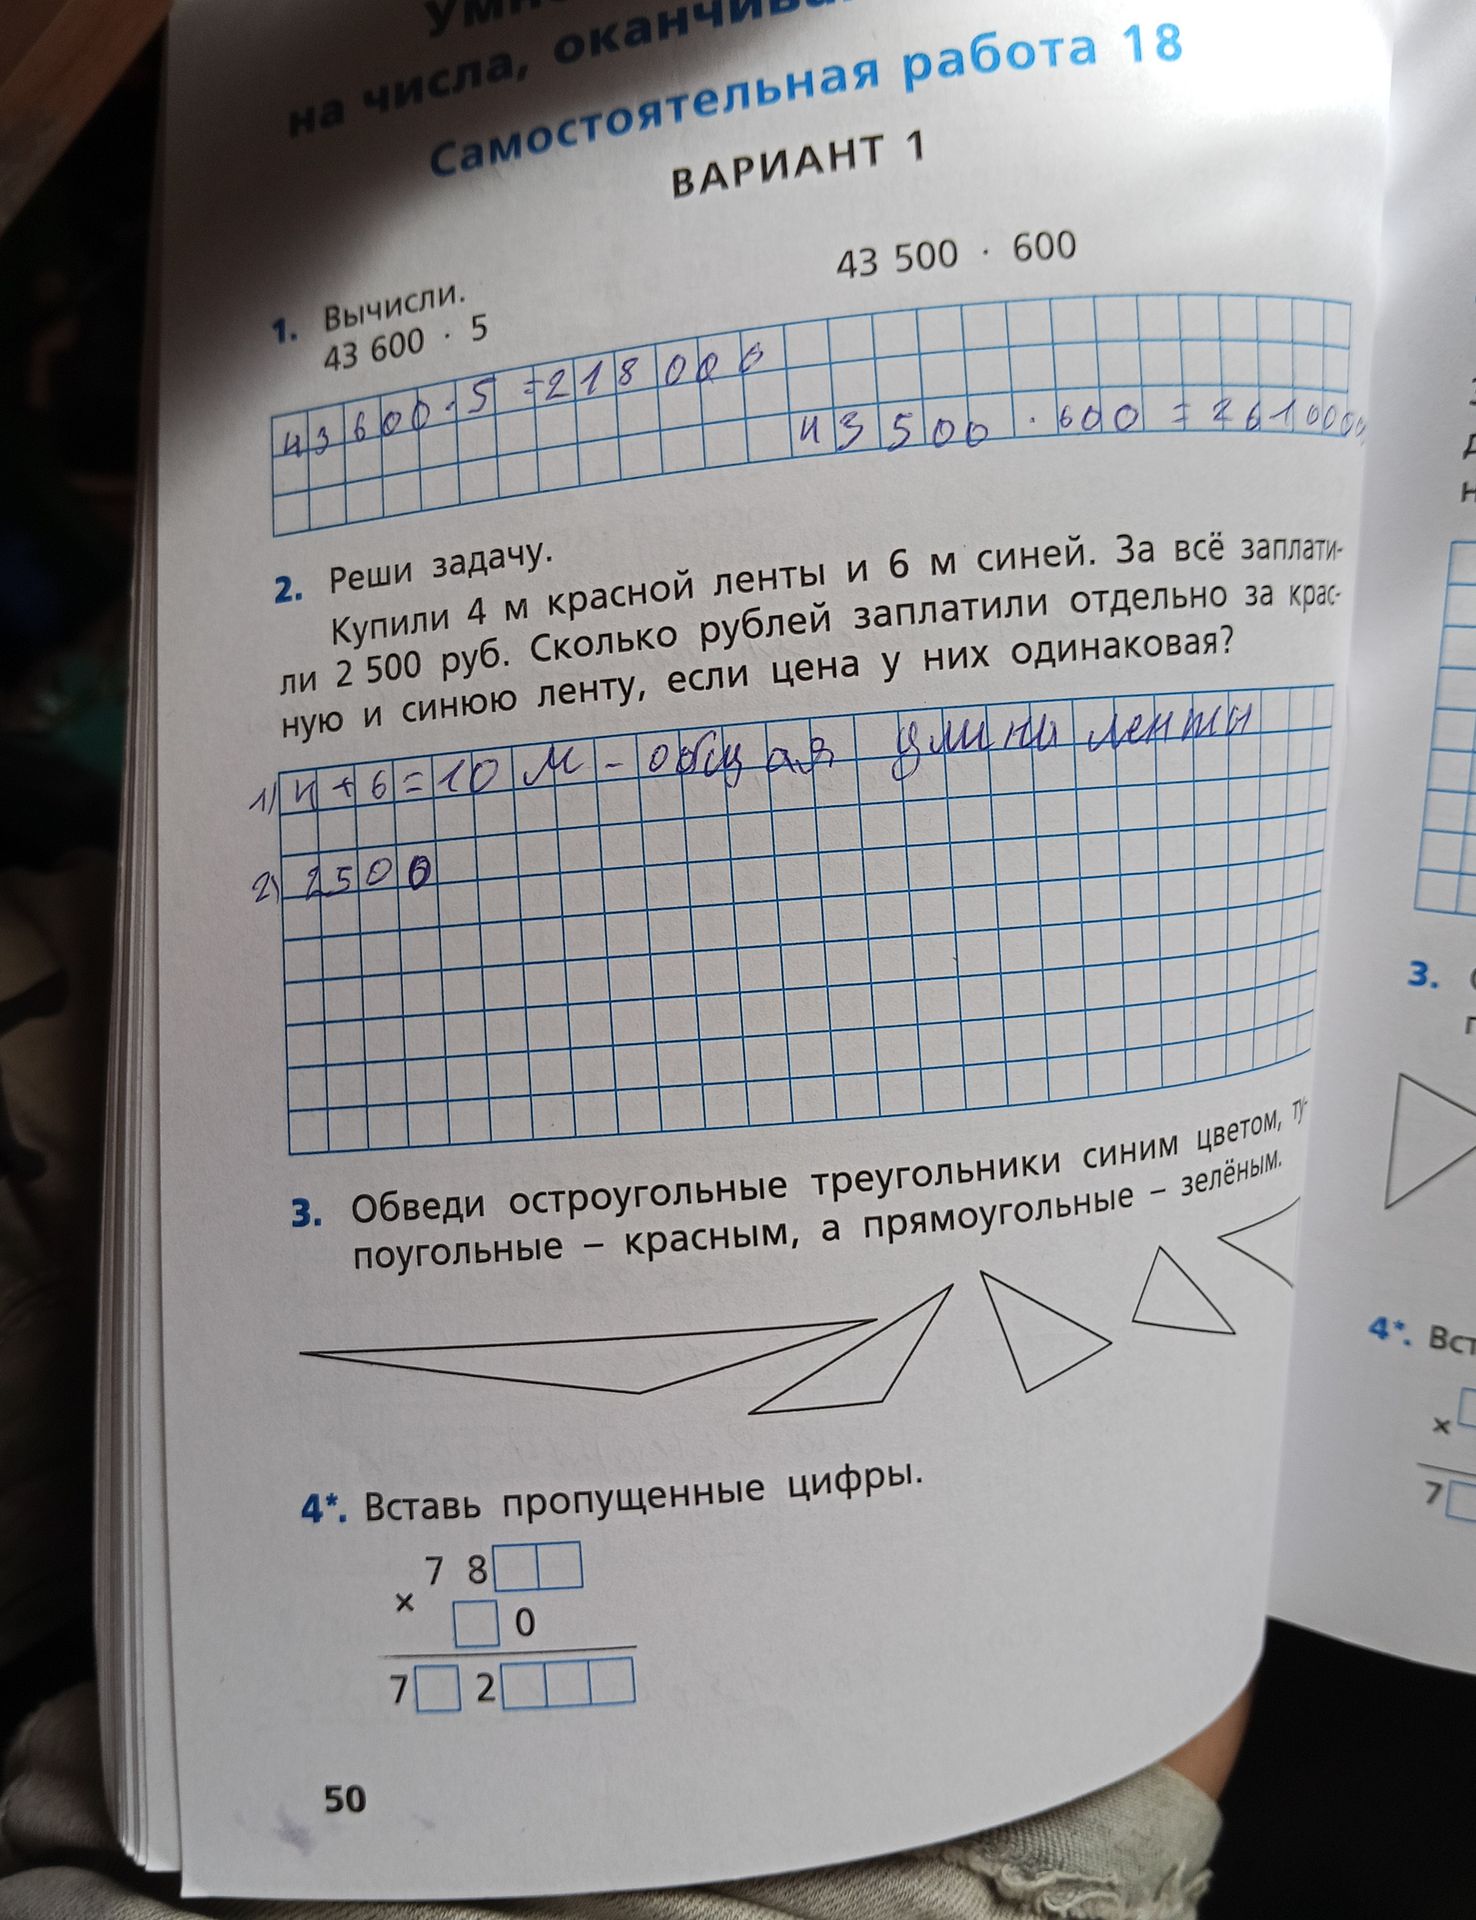 на числа,
Самостоятельная работа 18
ВАРИАНТ 1
1. Вычисли.
43 600 · 5
43 500 · 600
43600·5=218000
43500·600=2610000
2. Реши задачу.
Купили 4 м красной ленты и 6 м синей. За всё заплати-
ли 2 500 руб. Сколько рублей заплатили отдельно за крас-
ную и синюю ленту, если цена у них одинаковая?
1) 4+6=10 м - общая длини ленты
2) 2500
3. Обведи остроугольные треугольники синим цветом, ту-
поугольные – красным, а прямоугольные – зелёным.
4*. Вставь пропущенные цифры.
7 8
×
0
7 2
50
3.
4*. Вст
×
7